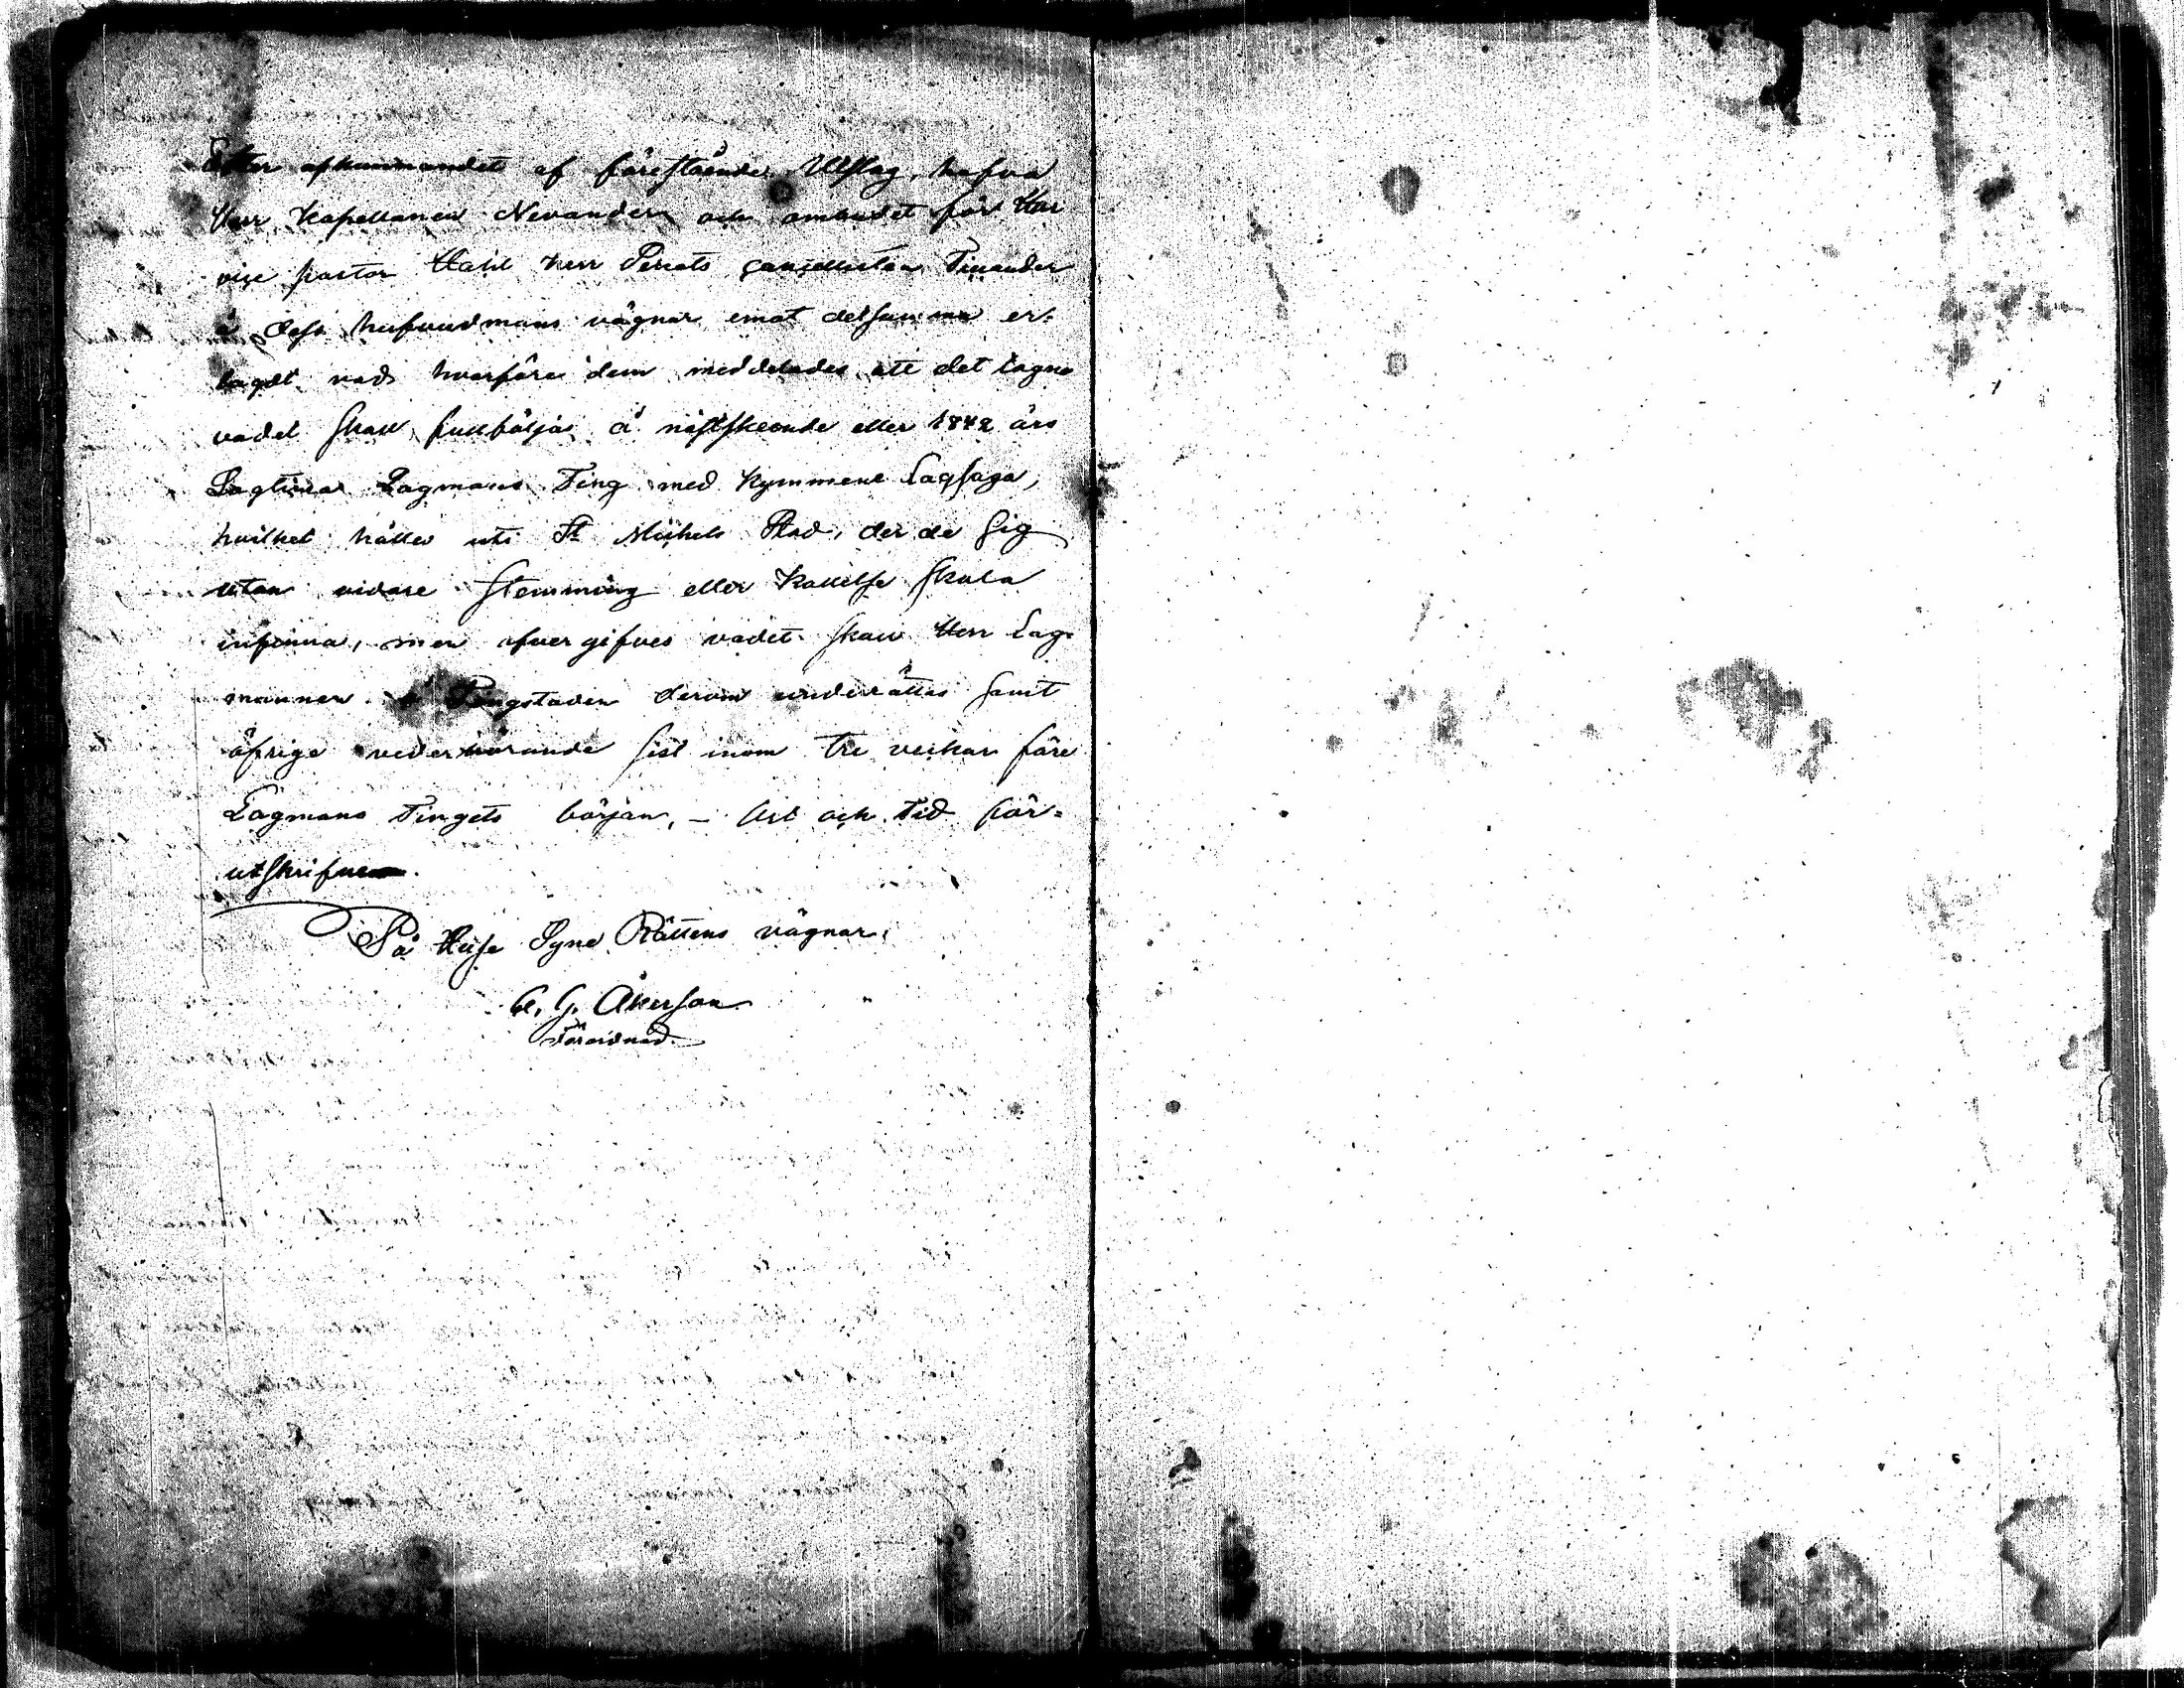 Efter afkunnandet af föreståénde Utslag, hafva
Herr Kapellanen Nevander och ombudet för Herr
vice pastor Wahl Herr Senats cancellisten Finander
å dess hufvudmans vägnar emot detsamma er-
lagdt vad, hvarföre dem meddelades att det tagne
vadet skall fullföljas å nästskeende eller 1842 års
Lagtima Lagmans Ting med Kymmene Lagsaga,
hvilket hålles uti St Michels Stad, der de sig
utan vidare stemning eller Kallelse skola
infinna, men öfvergifves vadet skall Herr Lag-
mannen å Tingstaden derom underrättas samt
öfrige vederbörande sist inom tre veckor före
Lagmans Tingets början, – Ort och tid för-
utskrifne.
På Huse Syne Rättens vägnar,
C. G. Åkerson
Förordnad.